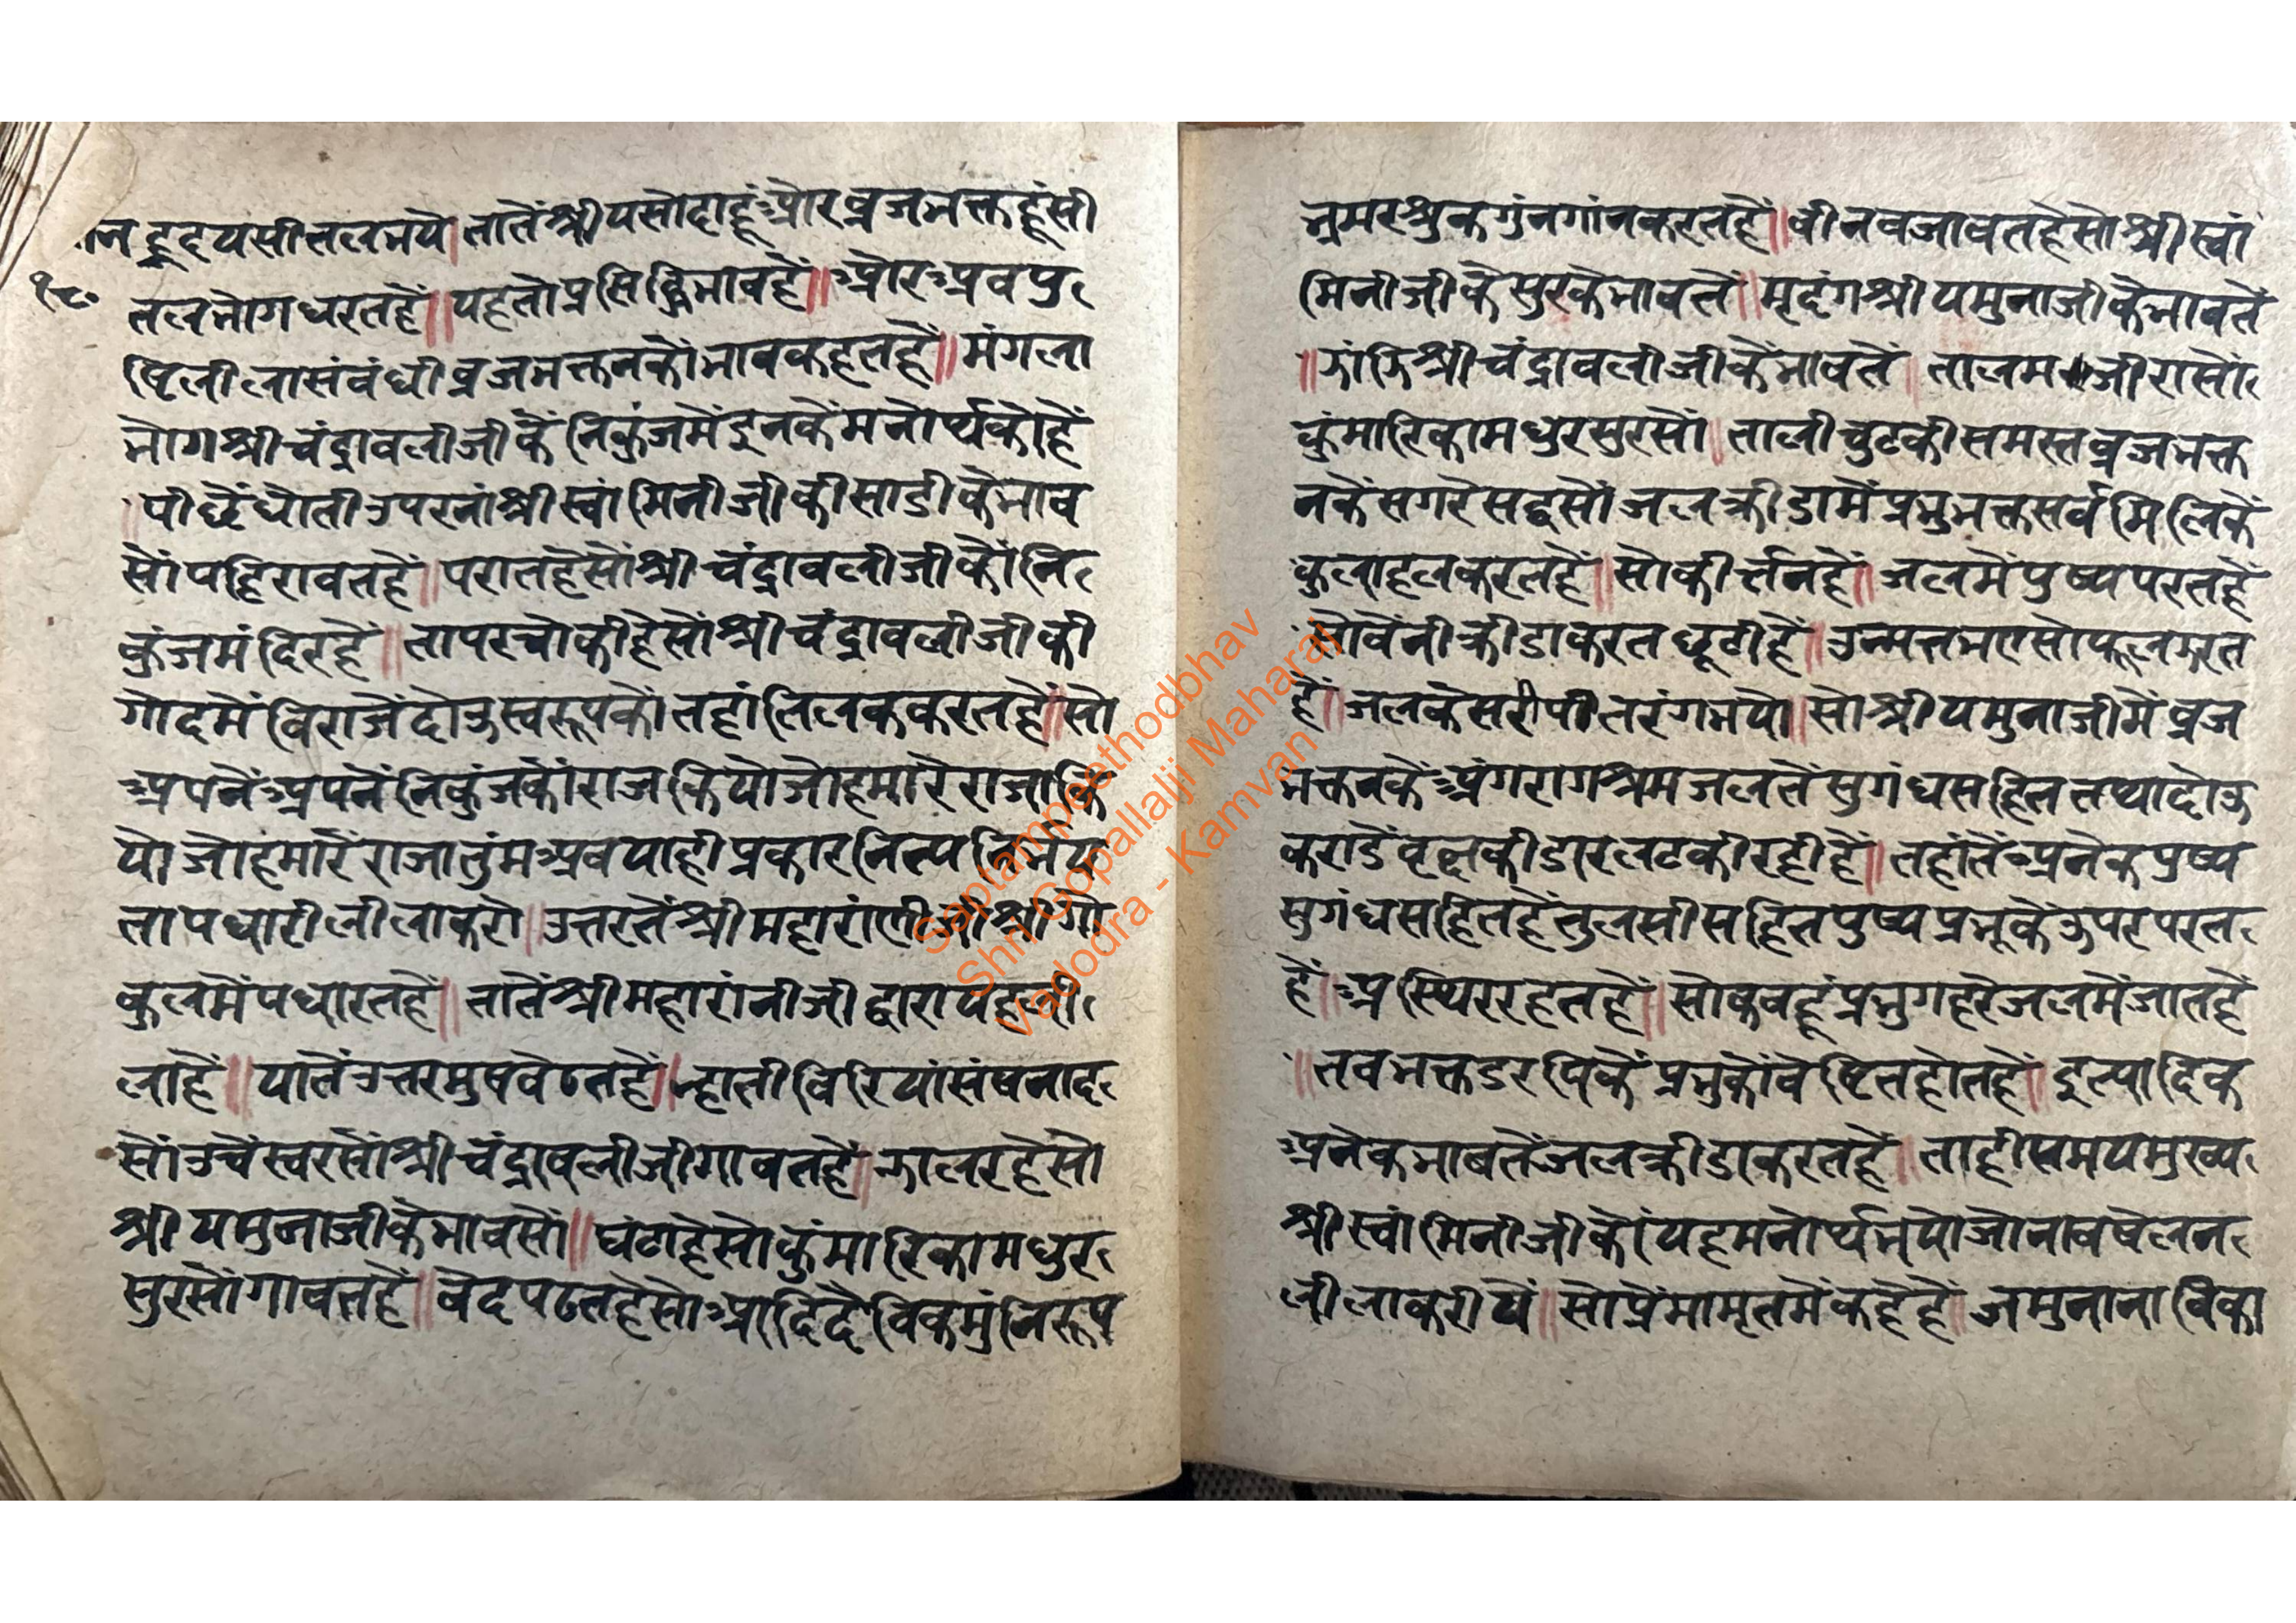 न हृदयसीतलभयै। तातैं श्रीयसोदाहूं और व्रजभक्तहूं सी
१८०
तलभोग धरतहैं॥ यहतो प्रसिद्धि भावहैं॥ और अवपु
ष्टिलीला संबंधी व्रजभक्तनकौ भाव कहतहैं॥ मंगला
भोग श्रीचंद्रावलीजी कैं निकुंजमें इनकैं मनोर्थकोहैं
पीछैं धोती उपरनां श्रीस्वांमिनीजीकी साडीकै भाव
सौं पहिरावतहैं॥ परातहै सौं श्रीचंद्रावलीजीकौं नि
कुंजमंदिरहैं॥ तापर चौकीहै सौं श्रीचंद्रावलीजीकी
गोदमें विराजैं दोऊ स्वरूपकौं तहां तिलक करतहैं॥ सो
अपनैं अपनैं निकुंजकौं राज कियौ जोहमारै राजा कि
यौ जोहमारै राजा तुंम अव याही प्रकार नित्य निर्भय
ता पधारी लीला करौ॥ उत्तरतें श्रीमहारांणीजी श्रीगो
कुलमें पधारतहैं॥ तातैं श्रीमहारांनीजी द्वारा यहली
लाहैं॥ यातें उत्तरमुष वैठतहैं॥ न्हाती विरियां संषनाद
सौं उचैं स्वरसौं श्रीचंद्रावलीजी गावतहैं॥ झालरहै सो
श्रीयमुनाजीकै भावसौं॥ घंटाहै सो कुंमारिका मधुर
सुरसौं गावतहैं॥ वेद पढतहै सो आदिदैविक मुंनिरूप
भ्रमर शुक गुंनगांन करतहैं॥ वीन वजावतहै सो श्रीस्वां
मिनीजीकै सुरकै भावतें॥ मृदंग श्रीयमुनाजीकै भावतें
॥ झांझि श्रीचंद्रावलीजीकै भावतें॥ तालमजीरा सों
कुंमारिका मधुर सुरसों॥ ताली चुटकी समस्त व्रजभक्त
नकैं सगरे सद्वसों जलक्रीडामें प्रभु भक्त सर्व मिलिकैं
कुलाहल करतहैं॥ सो कीर्त्तनहैं॥ जलमें पुष्प परतहैं
सो वैनी क्रीडा करत छूटीहैं॥ उन्मत्त भए सो फूल झरत
हैं॥ जल केसरी पीत रंग भयो॥ सो श्रीयमुनाजीमें व्रज
भक्तनकैं अंगराग श्रमजलतें सुगंध सहित तथा दोऊ
कराडें वृछकी डार लटकी रहीहैं॥ तहांतें अनेक पुष्प
सुगंध सहितहैं तुलसी सहित पुष्प प्रभूकै ऊपर परत
हैं॥ अस्थिर रहतहैं॥ सो कवहूं प्रभु गहरे जलमें जातहैं
॥ तव भक्त डरपिकैं प्रभुकौं वेष्टित होतहैं॥ इत्यादिक
अनेक भावतें जलक्रीडा करतहैं॥ ताही समय मुख्य
श्रीस्वांमिनीजीकौं यह मनोर्थ भयो जो नाव षेलन
लीला करीयैं॥ सो प्रेमामृतमें कहेहैं॥ जमुना नाविका